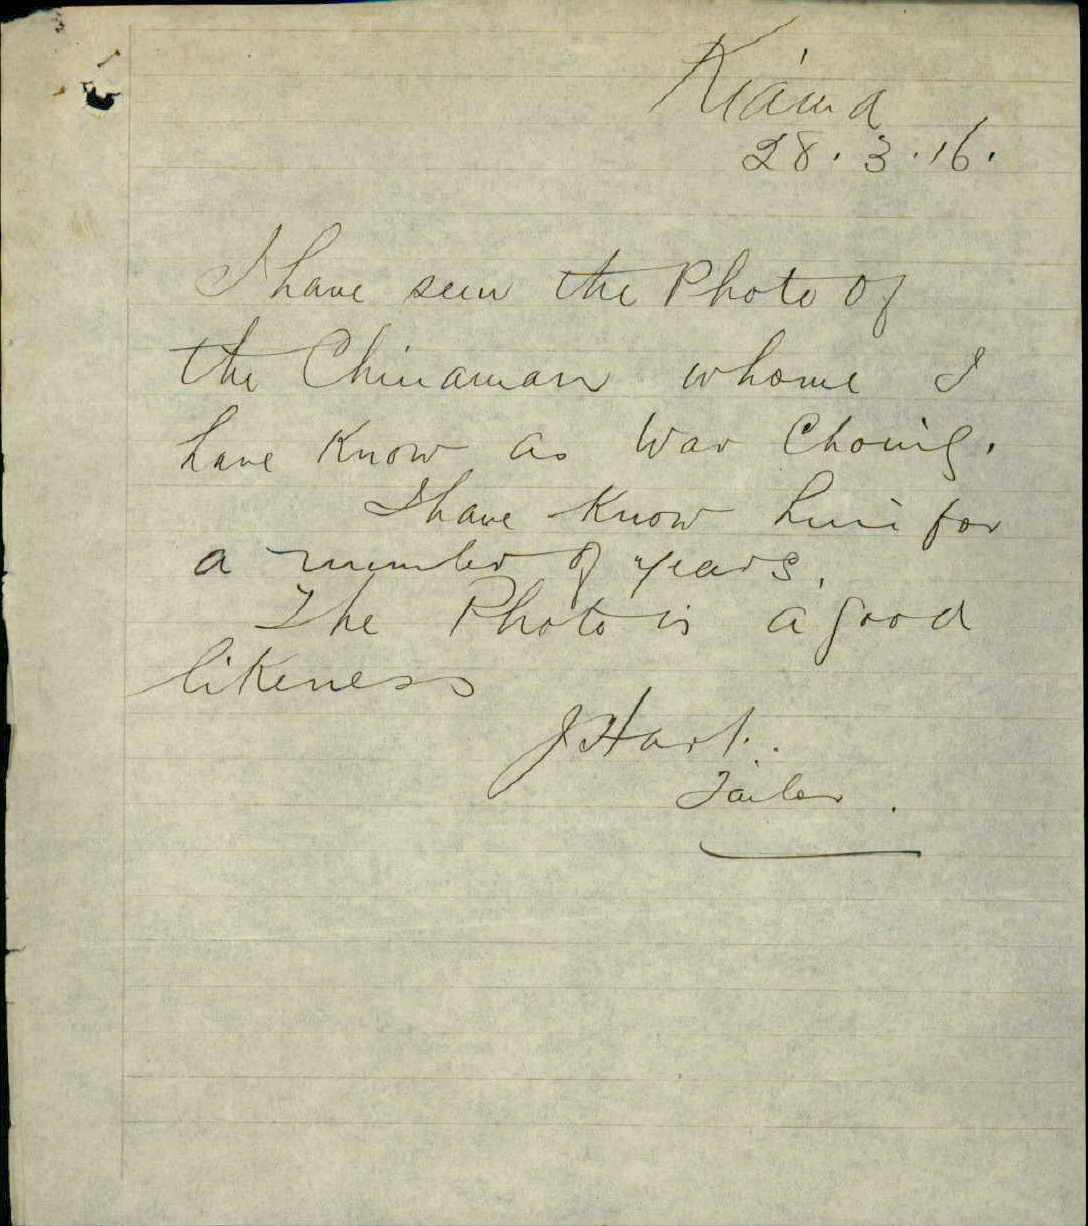 Kiama
28.3.16.
I have seen the Photo of
the Chinaman whome I
have Know as War Choing.
I have Know him for
a number of years.
The Photo is a good
likeness
J Hart.
Tailor.